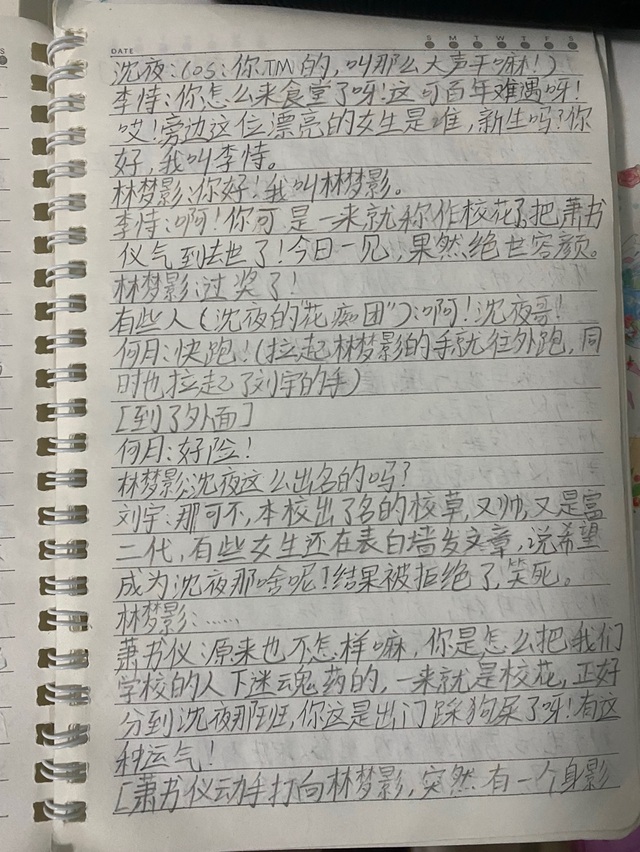 DATE
S M T W T F S
沈夜:(os:你TM的,叫那么大声干嘛!)
李恃:你怎么来食堂了呀!这可百年难遇呀!
哎!旁边这位漂亮的女生是谁,新生吗?你
好,我叫李恃。
林梦影:你好!我叫林梦影。
李恃:啊!你可是一来就称作校花了,把萧书
仪气到去世了!今日一见,果然绝世容颜。
林梦影:过奖了!
有些人(沈夜的"花痴团"):啊!沈夜哥!
何月:快跑!(拉起林梦影的手就往外跑,同
时也拉起了刘宇的手)
[到了外面]
何月:好险!
林梦影:沈夜这么出名的吗?
刘宇:那可不,本校出了名的校草,又帅,又是富
二代,有些女生还在表白墙发文章,说希望
成为沈夜那啥呢!结果被拒绝了,笑死。
林梦影:……
萧书仪:原来也不怎样嘛,你是怎么把我们
学校的人下迷魂药的,一来就是校花,正好
分到沈夜那班,你这是出门踩狗屎了呀!有这
种运气!
[萧书仪动手打向林梦影,突然有一个身影